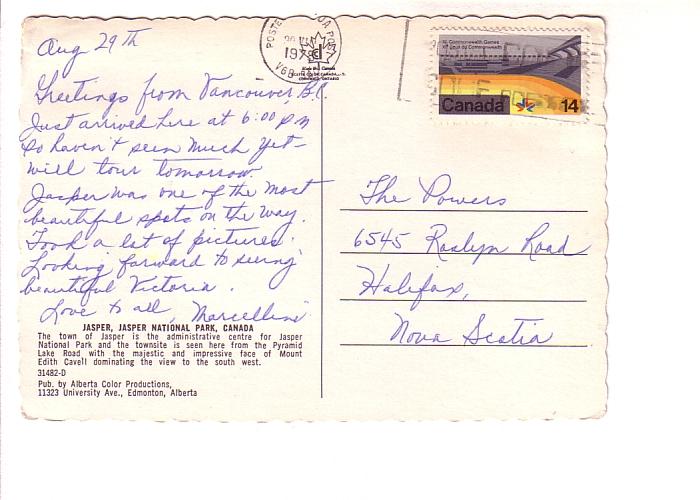 Aug 29th
Greetings from Vancouver, B.C.
Just arrived here at 6:00 pm
so haven't seen much yet -
will tour tomorrow
Jasper was one of the most
beautiful spots on the way.
Took a lot of pictures.
Looking forward to seeing
beautiful Victoria.
Love to all, Marcelline
JASPER, JASPER NATIONAL PARK, CANADA
The town of Jasper is the administrative centre for Jasper
National Park and the townsite is seen here from the Pyramid
Lake Road with the majestic and impressive face of Mount
Edith Cavell dominating the view to the south west.
31482-D
Pub. by Alberta Color Productions,
11323 University Ave., Edmonton, Alberta
1978
V6B
XI Commonwealth Games
XIes Jeux du Commonwealth
Canada 14
The Powers
6545 Roslyn Road
Halifax,
Nova Scotia